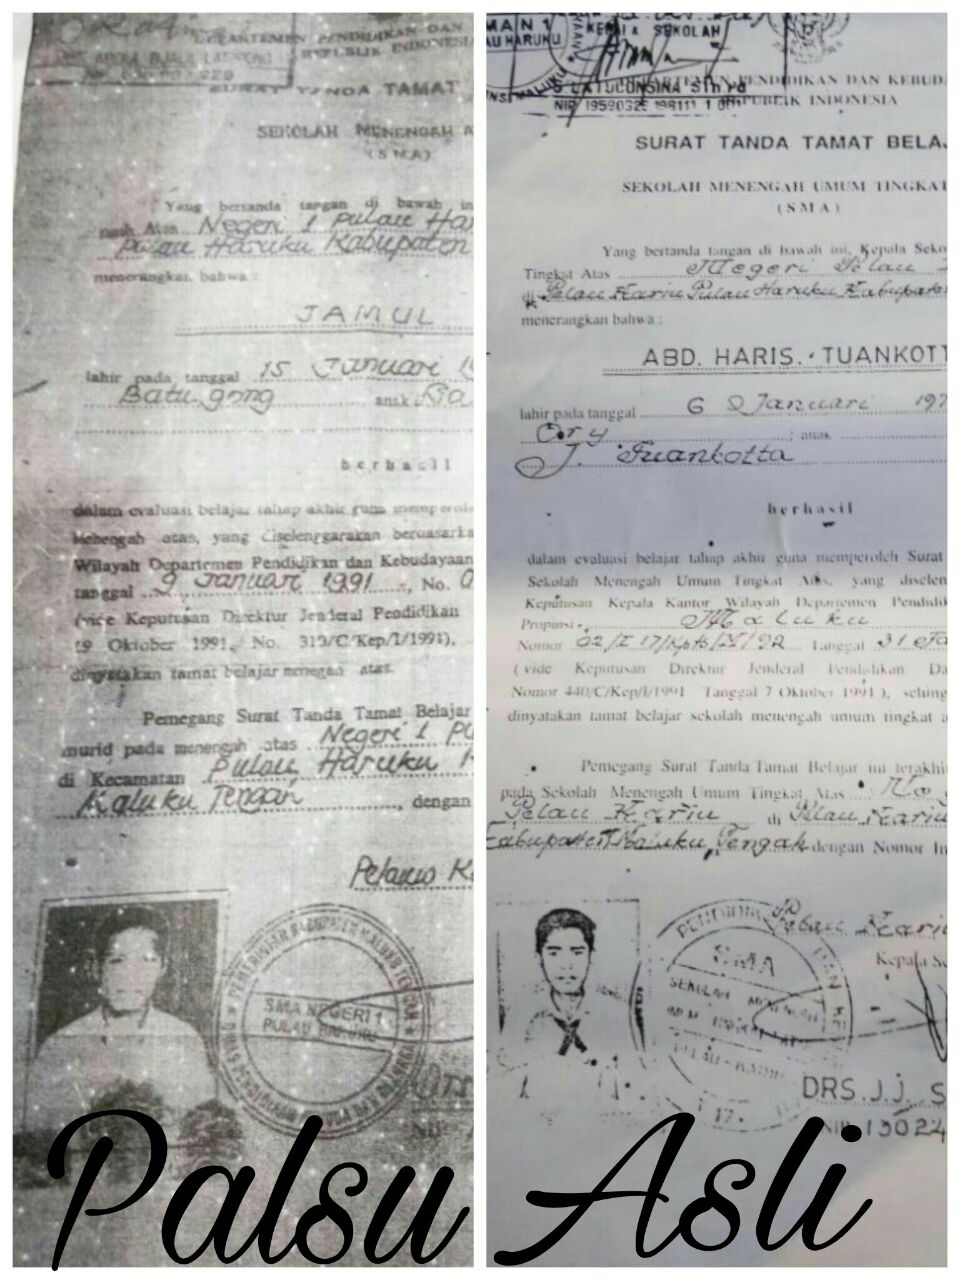 DEPARTEMEN PENDIDIKAN DAN
REPUBLIK INDONESIA
SURAT TANDA TAMAT
SEKOLAH MENENGAH A
(SMA)
Yang bertanda tangan di bawah in
Atas Negeri 1 Pulau Ha
Pulau Haruku Kabupaten
menerangkan bahwa :
JAMUL
lahir pada tanggal 15 Januari 1
Batu gong anak
berhasil
dalam evaluasi belajar tahap akhir guna memperole
Menengah atas, yang diselenggarakan berdasarka
Wilayah Departemen Pendidikan dan Kebudayaan
tanggal 9 Januari 1991, No. 0
(vide Keputusan Direktur Jenderal Pendidikan
19 Oktober 1991, No. 312/C/Kep/I/1991),
dinyatakan tamat belajar menegah atas.
Pemegang Surat Tanda Tamat Belajar
murid pada menengah atas Negeri 1 Pu
di Kecamatan Pulau Haruku
Maluku Tengah, dengan
SMA NEGERI 1
PULAU HARUKU
Palsu
MAN 1
AU HARUKU
KEPALA SEKOLAH
NIP 19590325 198111 1 001
DEPARTEMEN PENDIDIKAN DAN KEBUD
REPUBLIK INDONESIA
SURAT TANDA TAMAT BELAJ
SEKOLAH MENENGAH UMUM TINGKAT
(SMA)
Yang bertanda tangan di bawah ini, Kepala Seko
Tingkat Atas Negeri Pelau
di Pelau Kariu Pulau Haruku Kabupate
menerangkan bahwa :
ABD. HARIS. TUANKOTT
lahir pada tanggal 6 Januari 197
Ory ; anak
J. Tuankotta
berhasil
dalam evaluasi belajar tahap akhir guna memperoleh Surat
Sekolah Menengah Umum Tingkat Atas, yang diselen
Keputusan Kepala Kantor Wilayah Departemen Pendidi
Propinsi Maluku
Nomor Tanggal 31
(vide Keputusan Direktur Jenderal Pendidikan Da
Nomor 440/C/Kep/I/1991 Tanggal 7 Oktober 1991), sehing
dinyatakan tamat belajar sekolah menengah umum tingkat a
Pemegang Surat Tanda Tamat Belajar ini terakhi
pada Sekolah Menengah Umum Tingkat Atas
Pelau Kariu di Pelau Kariu
Kabupaten Maluku Tengah dengan Nomor In
Pelau Kariu
Kepala Se
SMA
DRS. J.J. S
NIP. 13024
Asli